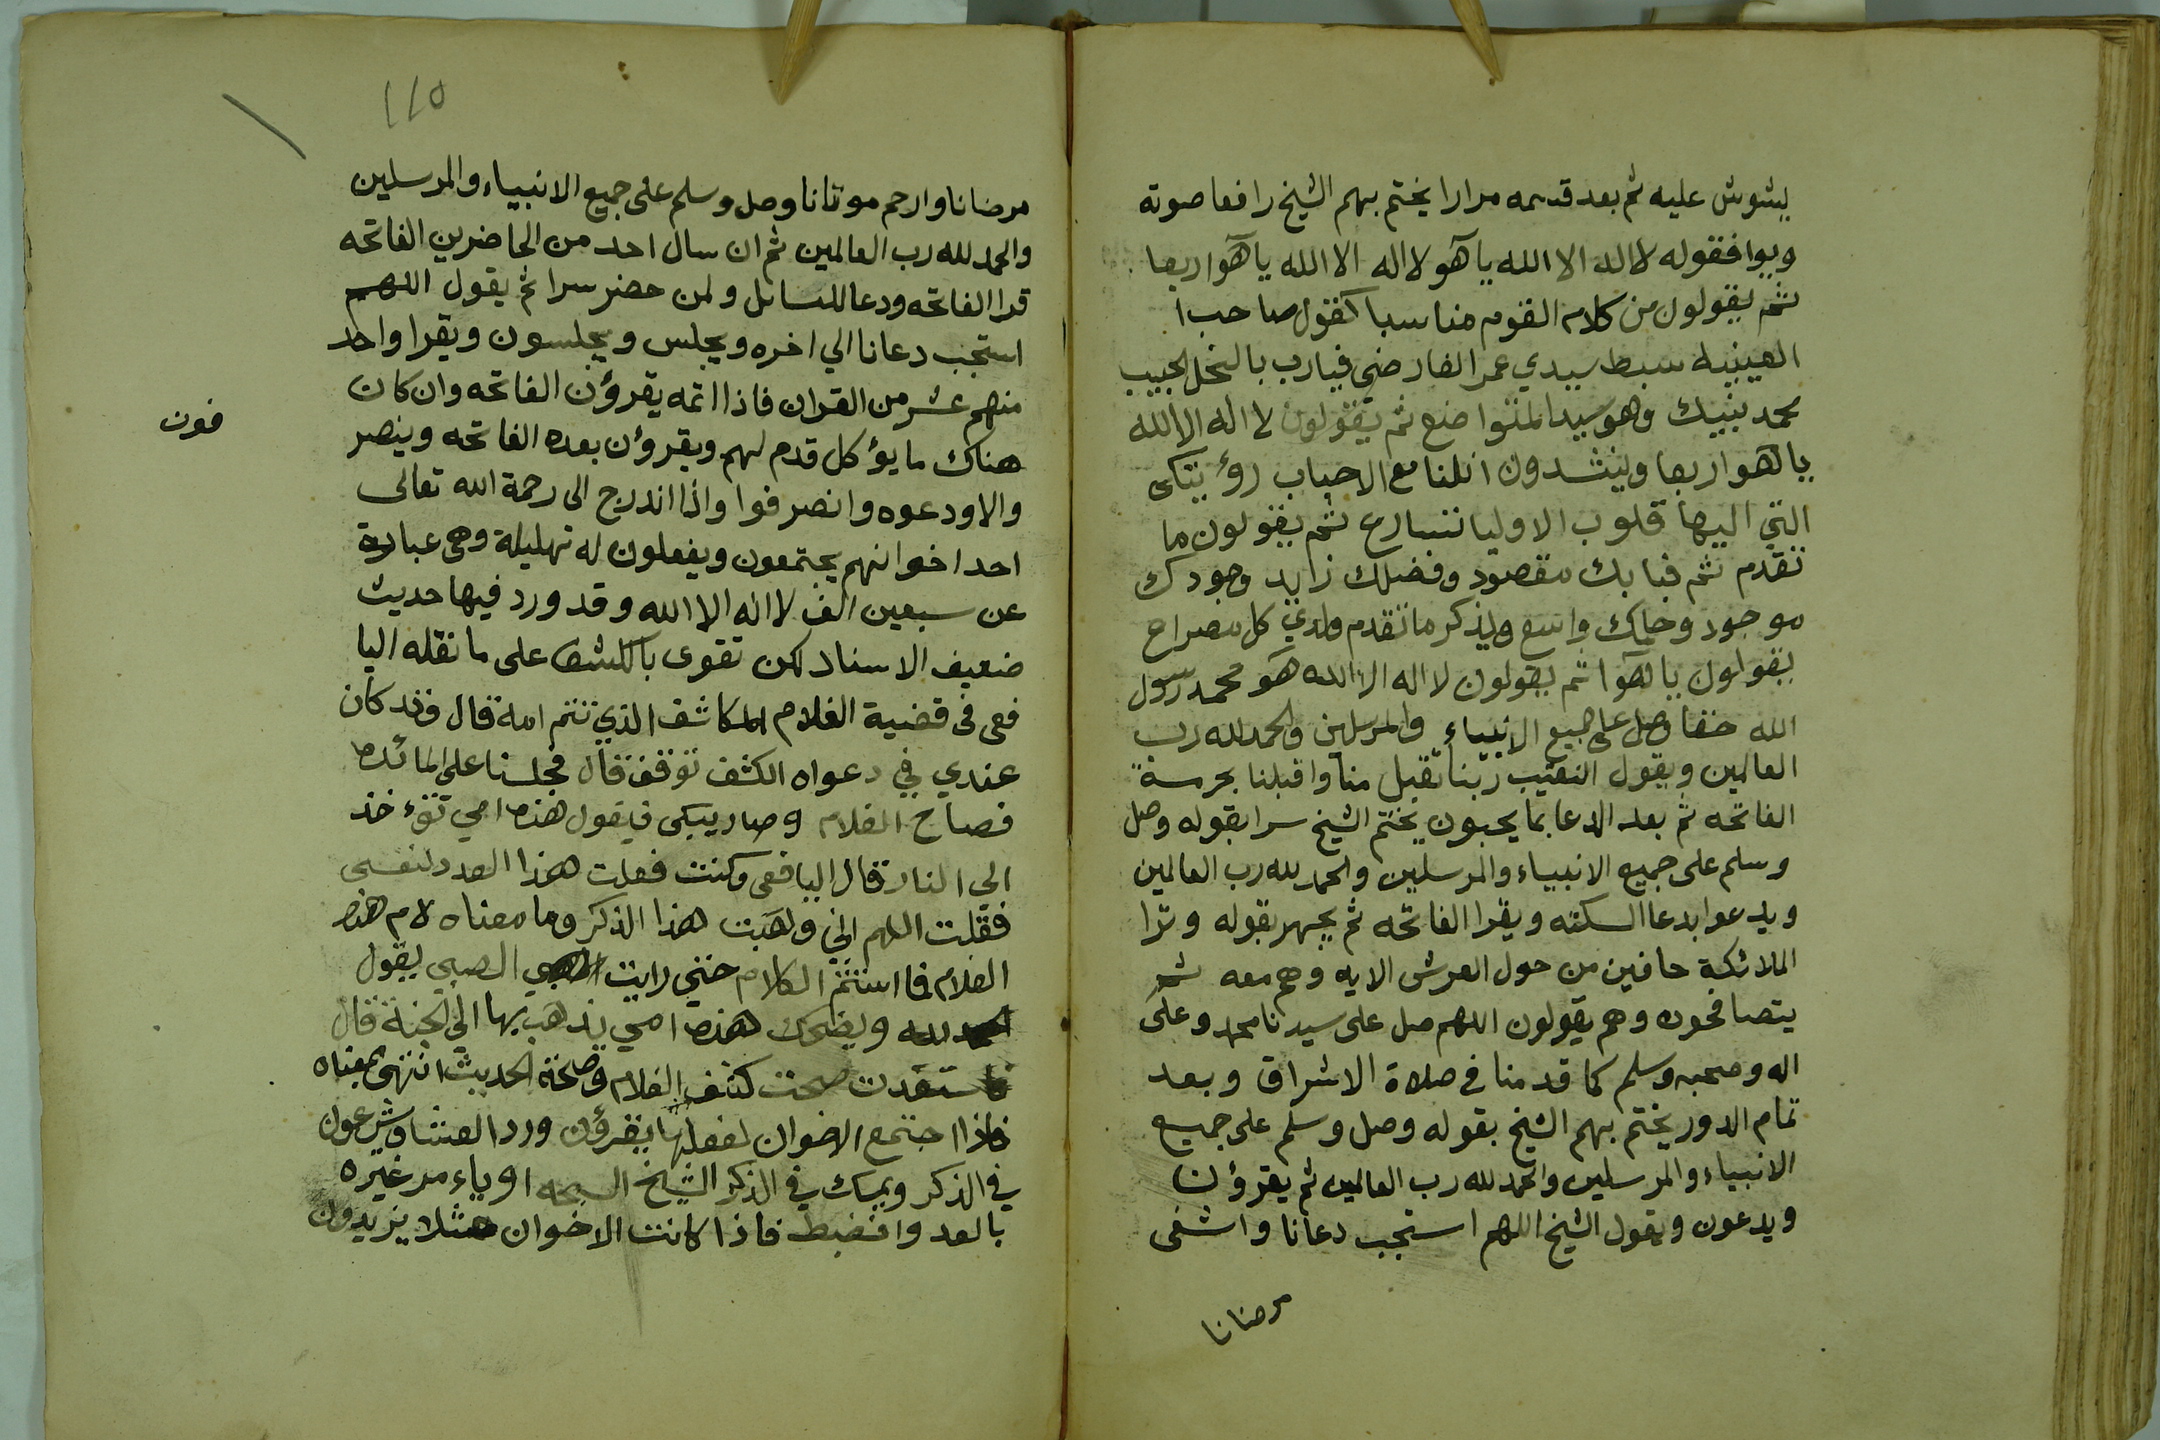 يشوش عليه ثم بعد قدىمه مرارا يختم بهم الشيخ رافعا صوته
ويوافقوله لا اله الا الله يا هو لا اله الا الله يا هو اربعا
ثم يقولون من كلام القوم مناسبا كقول صاحب ا
العينيه سبط سيدي عمر الفارضي فيارب بالخل الحبيب
محمد نبيك وهو سيد المتواضع ثم يقولون لا اله الا الله
يا هو اربعا وينشدون انلنا مع الاحباب رؤيتك
التي اليها قلوب الاوليا تسارع ثم يقولون ما
تقدم ثم فبابك مقصود وفضلك زايد وجودك
موجود وحلمك واسع ويذكر ما تقدم ولدي كل مصراع
يقولون يا هو اثم يقولون لا اله الا الله هو محمد رسول
الله حقا وصل على جميع الانبياء والمرسلين والحمد لله رب
العالمين ويقول النقيب ربنا تقبل منا واقبلنا بحرمة
الفاتحه ثم بعد الدعا بما يحبون يختم الشيخ سرا بقوله وصل
وسلم على جميع الانبياء والمرسلين والحمد لله رب العالمين
ويدعوا بدعا السكته ويقرا الفاتحه ثم يجهر بقوله وترا
الملائكة حافين من حول العرش الايه وهم معه ثم
يتصافحون وهم يقولون اللهم صل على سيدنا محمد وعلى
اله وصحبه وسلم كما قدمنا في صلاة الاشراق وبعد
تمام الدور يختم بهم الشيخ بقوله وصل وسلم على جميع
الانبياء والمرسلين والحمد لله رب العالمين ثم يقرؤن
ويدعون ويقول الشيخ اللهم استجب دعانا واشفى
مرضانا
١١٥
مرضانا وارحم موتانا وصل وسلم على جميع الانبياء والمرسلين
والحمد لله رب العالمين ثم ان سال احد من الحاضرين الفاتحه
قرا الفاتحه ودعا للسائل ولمن حضر سرا ثم يقول اللهم
استجب دعانا الي اخره ويجلس ويجلسون ويقرا واحد
منهم عشر من القران فاذا اتمه يقرؤن الفاتحه وان كان
هناك ما يؤكل قدم لهم ويقرؤن بعده الفاتحه وينصر
فون
والا ودعوه وانصرفوا واذا اندرج الى رحمة الله تعالى
احد اخوانهم يجتمعون ويفعلون له تهليلة وهي عبارة
عن سبعين الف لا اله الا الله وقد ورد فيها حديث
ضعيف الاسناد لكن تقوى بالكشف على ما نقله اليا
فعى فى قضية الغلام المكاشف الذي تنتم امه قال وقد كان
عندي في دعواه الكشف توقف قال فجلسنا على المائده
فصاح الغلام وصار يبكى فيقول هذه امي تؤخذ
الي النار قال اليافعى وكنت فعلت هذا العدد لنفسى
فقلت اللهم اني وهبت هذا الذكر وما معناه لام هذه
الغلام فما استتم الكلام حتي رايت الصبي يقول
الحمد لله ويضحك هذه امي يذهب بها الي الجنة قال
فاستفدت صحت كشف الغلام وصحة الحديث انتهى بمعناه
فاذا اجتمع الاخوان لفعلها يقرؤن ورد العشا ويشرعون
في الذكر ويمسك في الذكر الشيخ السبحه اويامر غيره
بالعد واضبط فاذا كانت الاخوان مثلا يزيدون